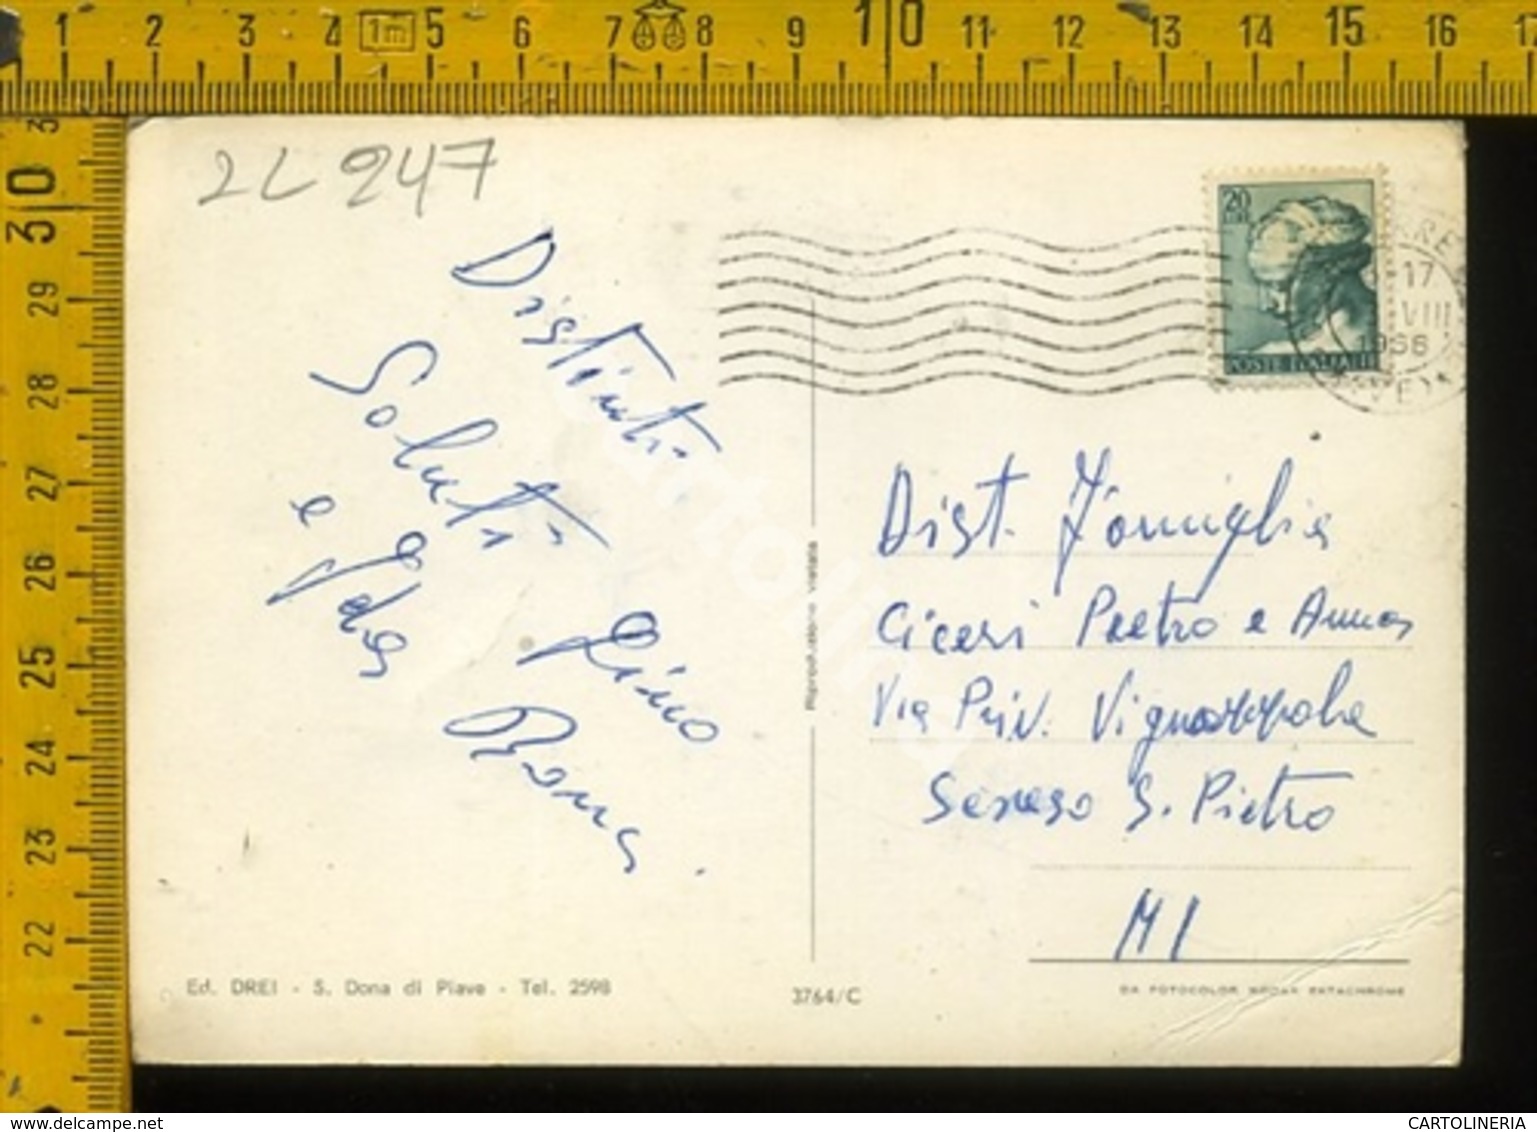 1 2 3 4 1m 5 6 7 8 9 10 11 12 13 14 15 16 17
30 29 28 27 26 25 24 23 22
2L 247
20
17
VIII
1966
POSTE ITALIANE
Distinti
Saluti Gino
e Ida Bona
Dist. Famiglia
Ciceri Pietro e Anna
Via Priv. Vignazzola
Seveso S. Pietro
MI
Riproduzione vietata
Ed. DREI - S. Dona di Piave - Tel. 2598
3764/C
DA FOTOCOLOR KODAK EKTACHROME
www.delcampe.net
CARTOLINERIA